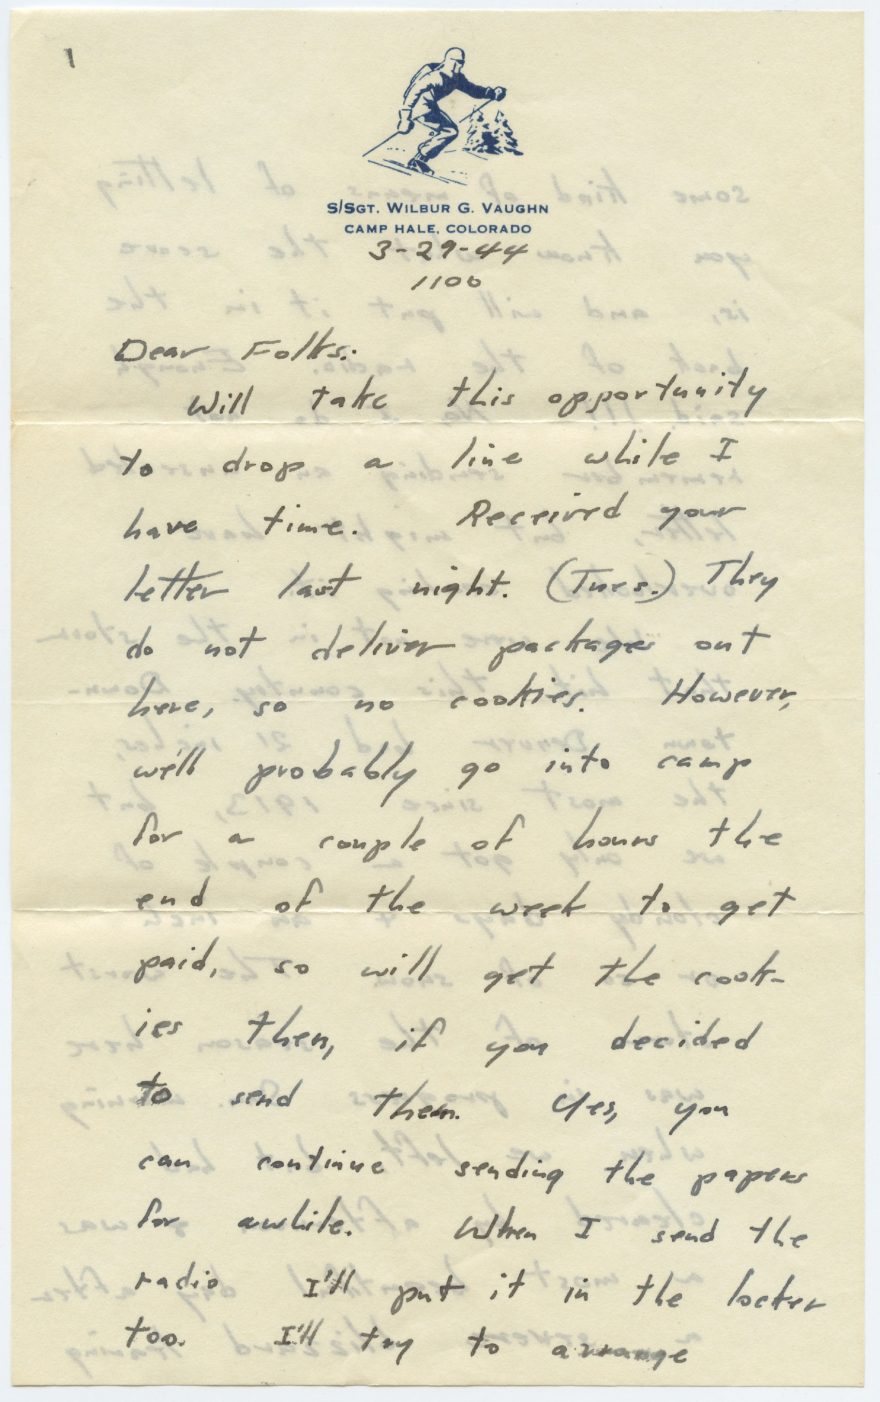 1
S/SGT. WILBUR G. VAUGHN
CAMP HALE, COLORADO
3-29-44
1100
Dear Folks:
Will take this opportunity
to drop a line while I
have time. Received your
letter last night. (Tues.) They
do not deliver packages out
here, so no cookies. However,
we'll probably go into camp
for a couple of hours the
end of the week to get
paid, so will get the cook-
ies then, if you decided
to send them. Yes, you
can continue sending the papers
for awhile. When I send the
radio I'll put it in the locker
too. I'll try to arrange